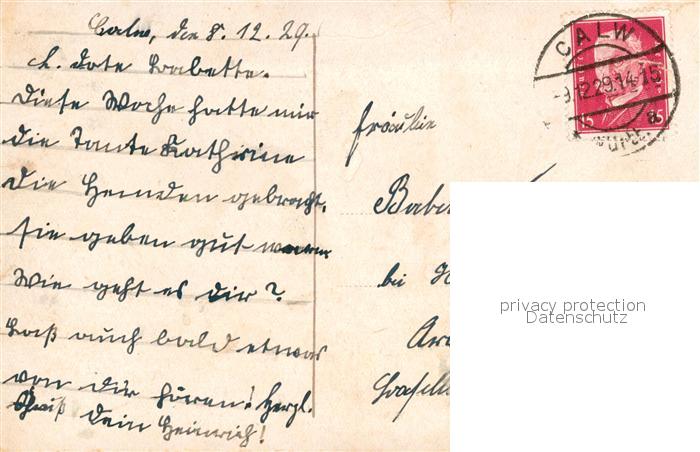 Calw, den 8. 12. 29.
L. Dote Babette.
Diese Woche hatte mir
die Tante Katharine
die Hemden gebracht.
sie geben gut warm
Wie geht es dir?
Laß auch bald etwas
von dir hören! Herzl.
Gruß Dein Heinrich!
CALW
-9.12.29.14-15
a
* (Württ.) *
15 15
Fräulein
bei
privacy protection
Datenschutz